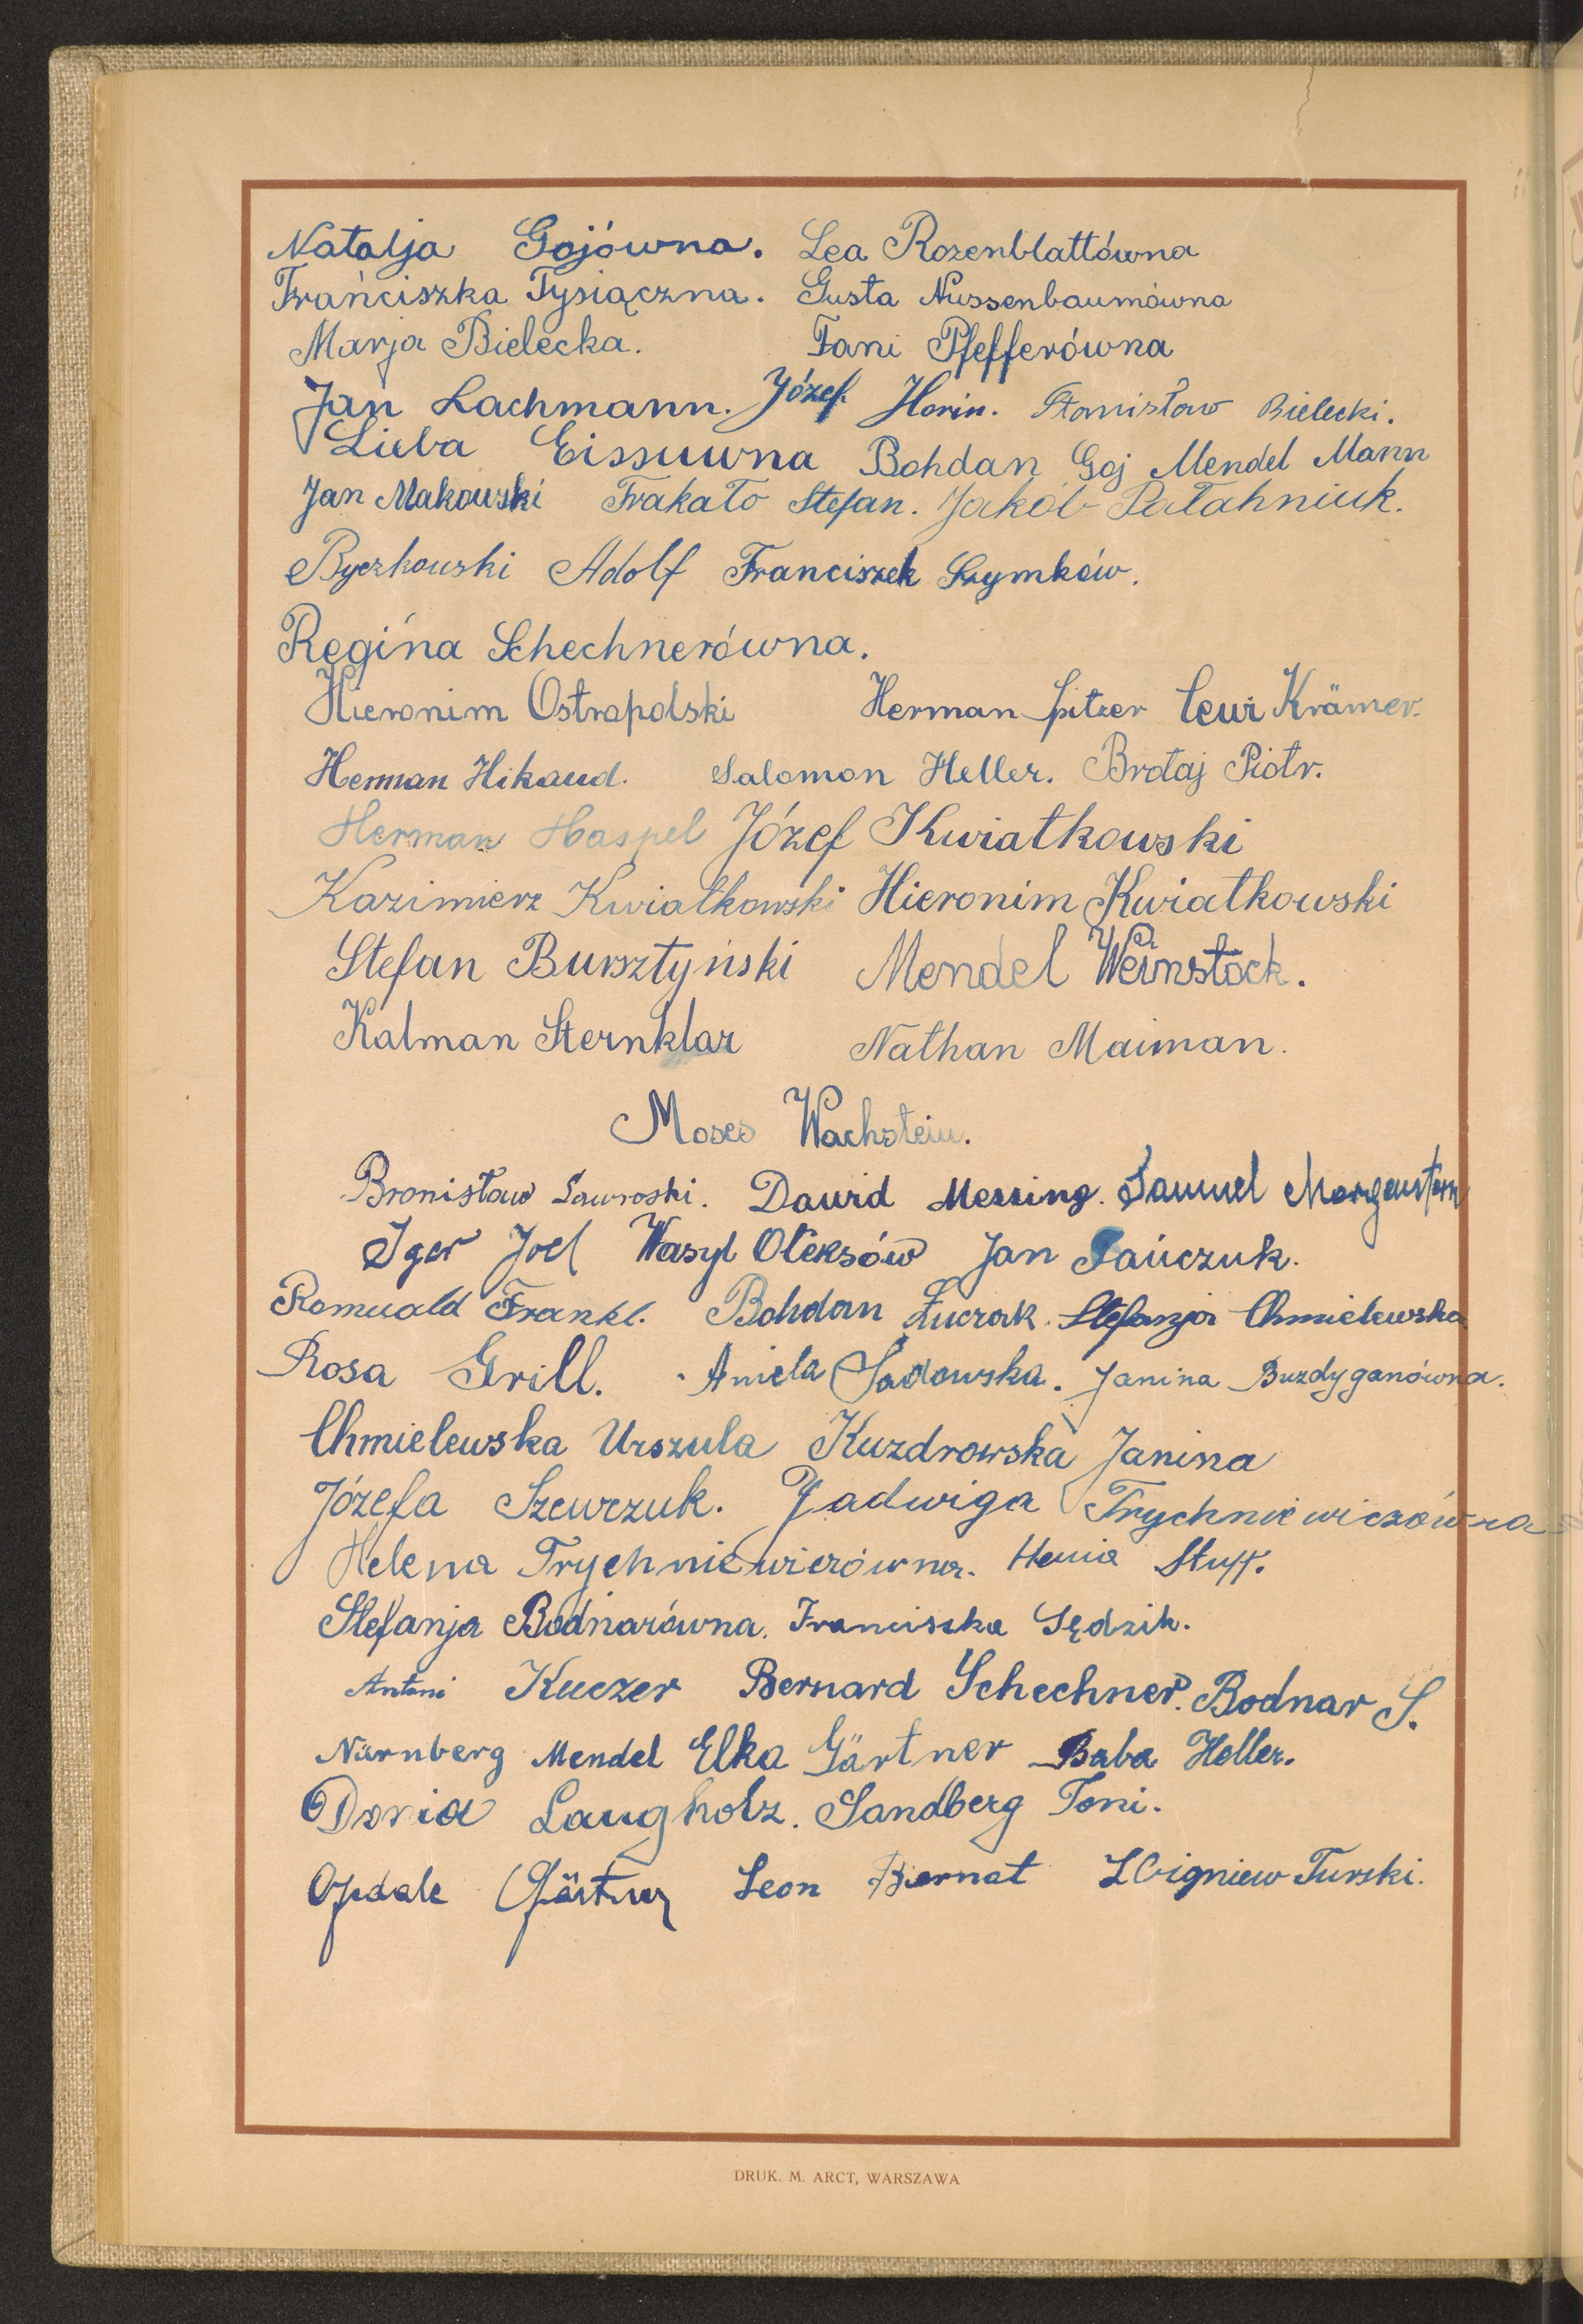 Natalja Gojówna. Lea Rozenblattówna
Frańciszka Tysiączna. Gusta Nussenbaumówna
Marja Bielecka. Fani Pfefferówna
Jan Lachmann. Józef Horin. Stanisław Bielecki.
Lieba Eissuwna Bohdan Goj Mendel Mann
Jan Makowski Frakało Stefan. Jakób Pałahniuk.
Byczkowski Adolf Franciszek Szymków.
Regina Schechnerówna.
Hieronim Ostrapolski Herman Spitzer Lewi Krämer.
Herman Hikaud. Salomon Heller. Brataj Piotr.
Herman Haspel Józef Kwiatkowski
Kazimierz Kwiatkowski Hieronim Kwiatkowski
Stefan Bursztyński Mendel Weinstock.
Kalman Sternklar Nathan Maiman.
Moses Wachstein.
Bronisław Sawroski. Dawid Messing. Samuel Morgenstern
Iger Joel Wasyl Ołeksów Jan Pańczuk.
Romuald Frankl. Bohdan Łuczak. Stefanja Chmielewska
Rosa Grill. Aniela Sadowska. Janina Buzdyganówna.
Chmielewska Urszula Kuzdrowska Janina
Józefa Szewczuk. Jadwiga Trychniewiczówna
Helena Trychniewiczówna. Henia Stuff.
Stefanja Bodnarówna. Franciszka Sędzik.
Antoni Kuczer Bernard Schechner. Bodnar S.
Nürnberg Mendel Elka Gärtner Baba Heller.
Dawid Langholz. Sandberg Toni.
Gärtner Leon Biernat Zbigniew Turski.
DRUK. M. ARCT, WARSZAWA